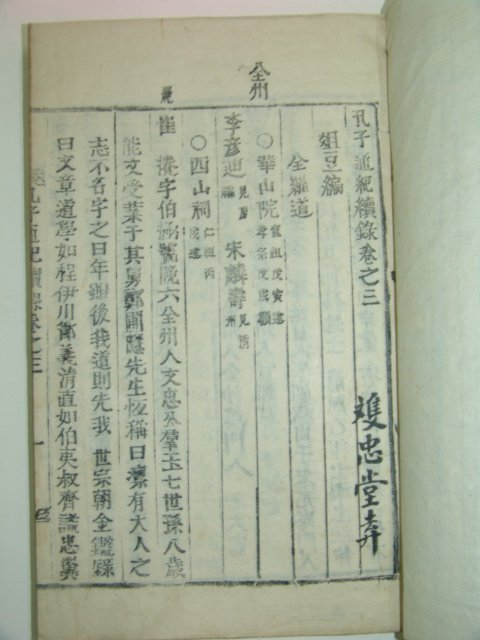 孔子通紀續錄卷之三
雙忠堂弆
俎豆編
全羅道
全州
○華山院 宣祖戊寅建 孝宗戊戌額
李彦迪 見慶州 宋麟壽 見淸州
○西山祠 仁祖丙戌建
麗
崔瀁字伯涵號晩六全州人文惠公羣玉七世孫八歲
能文受業于其舅鄭圃隱先生恒稱曰瀁有大人之
志不名字之曰年雖後我道則先我 世宗朝全鑑錄
曰文章道學如程伊川節義淸直如伯夷叔齊諡忠翼
孔子通紀續錄卷之三 一